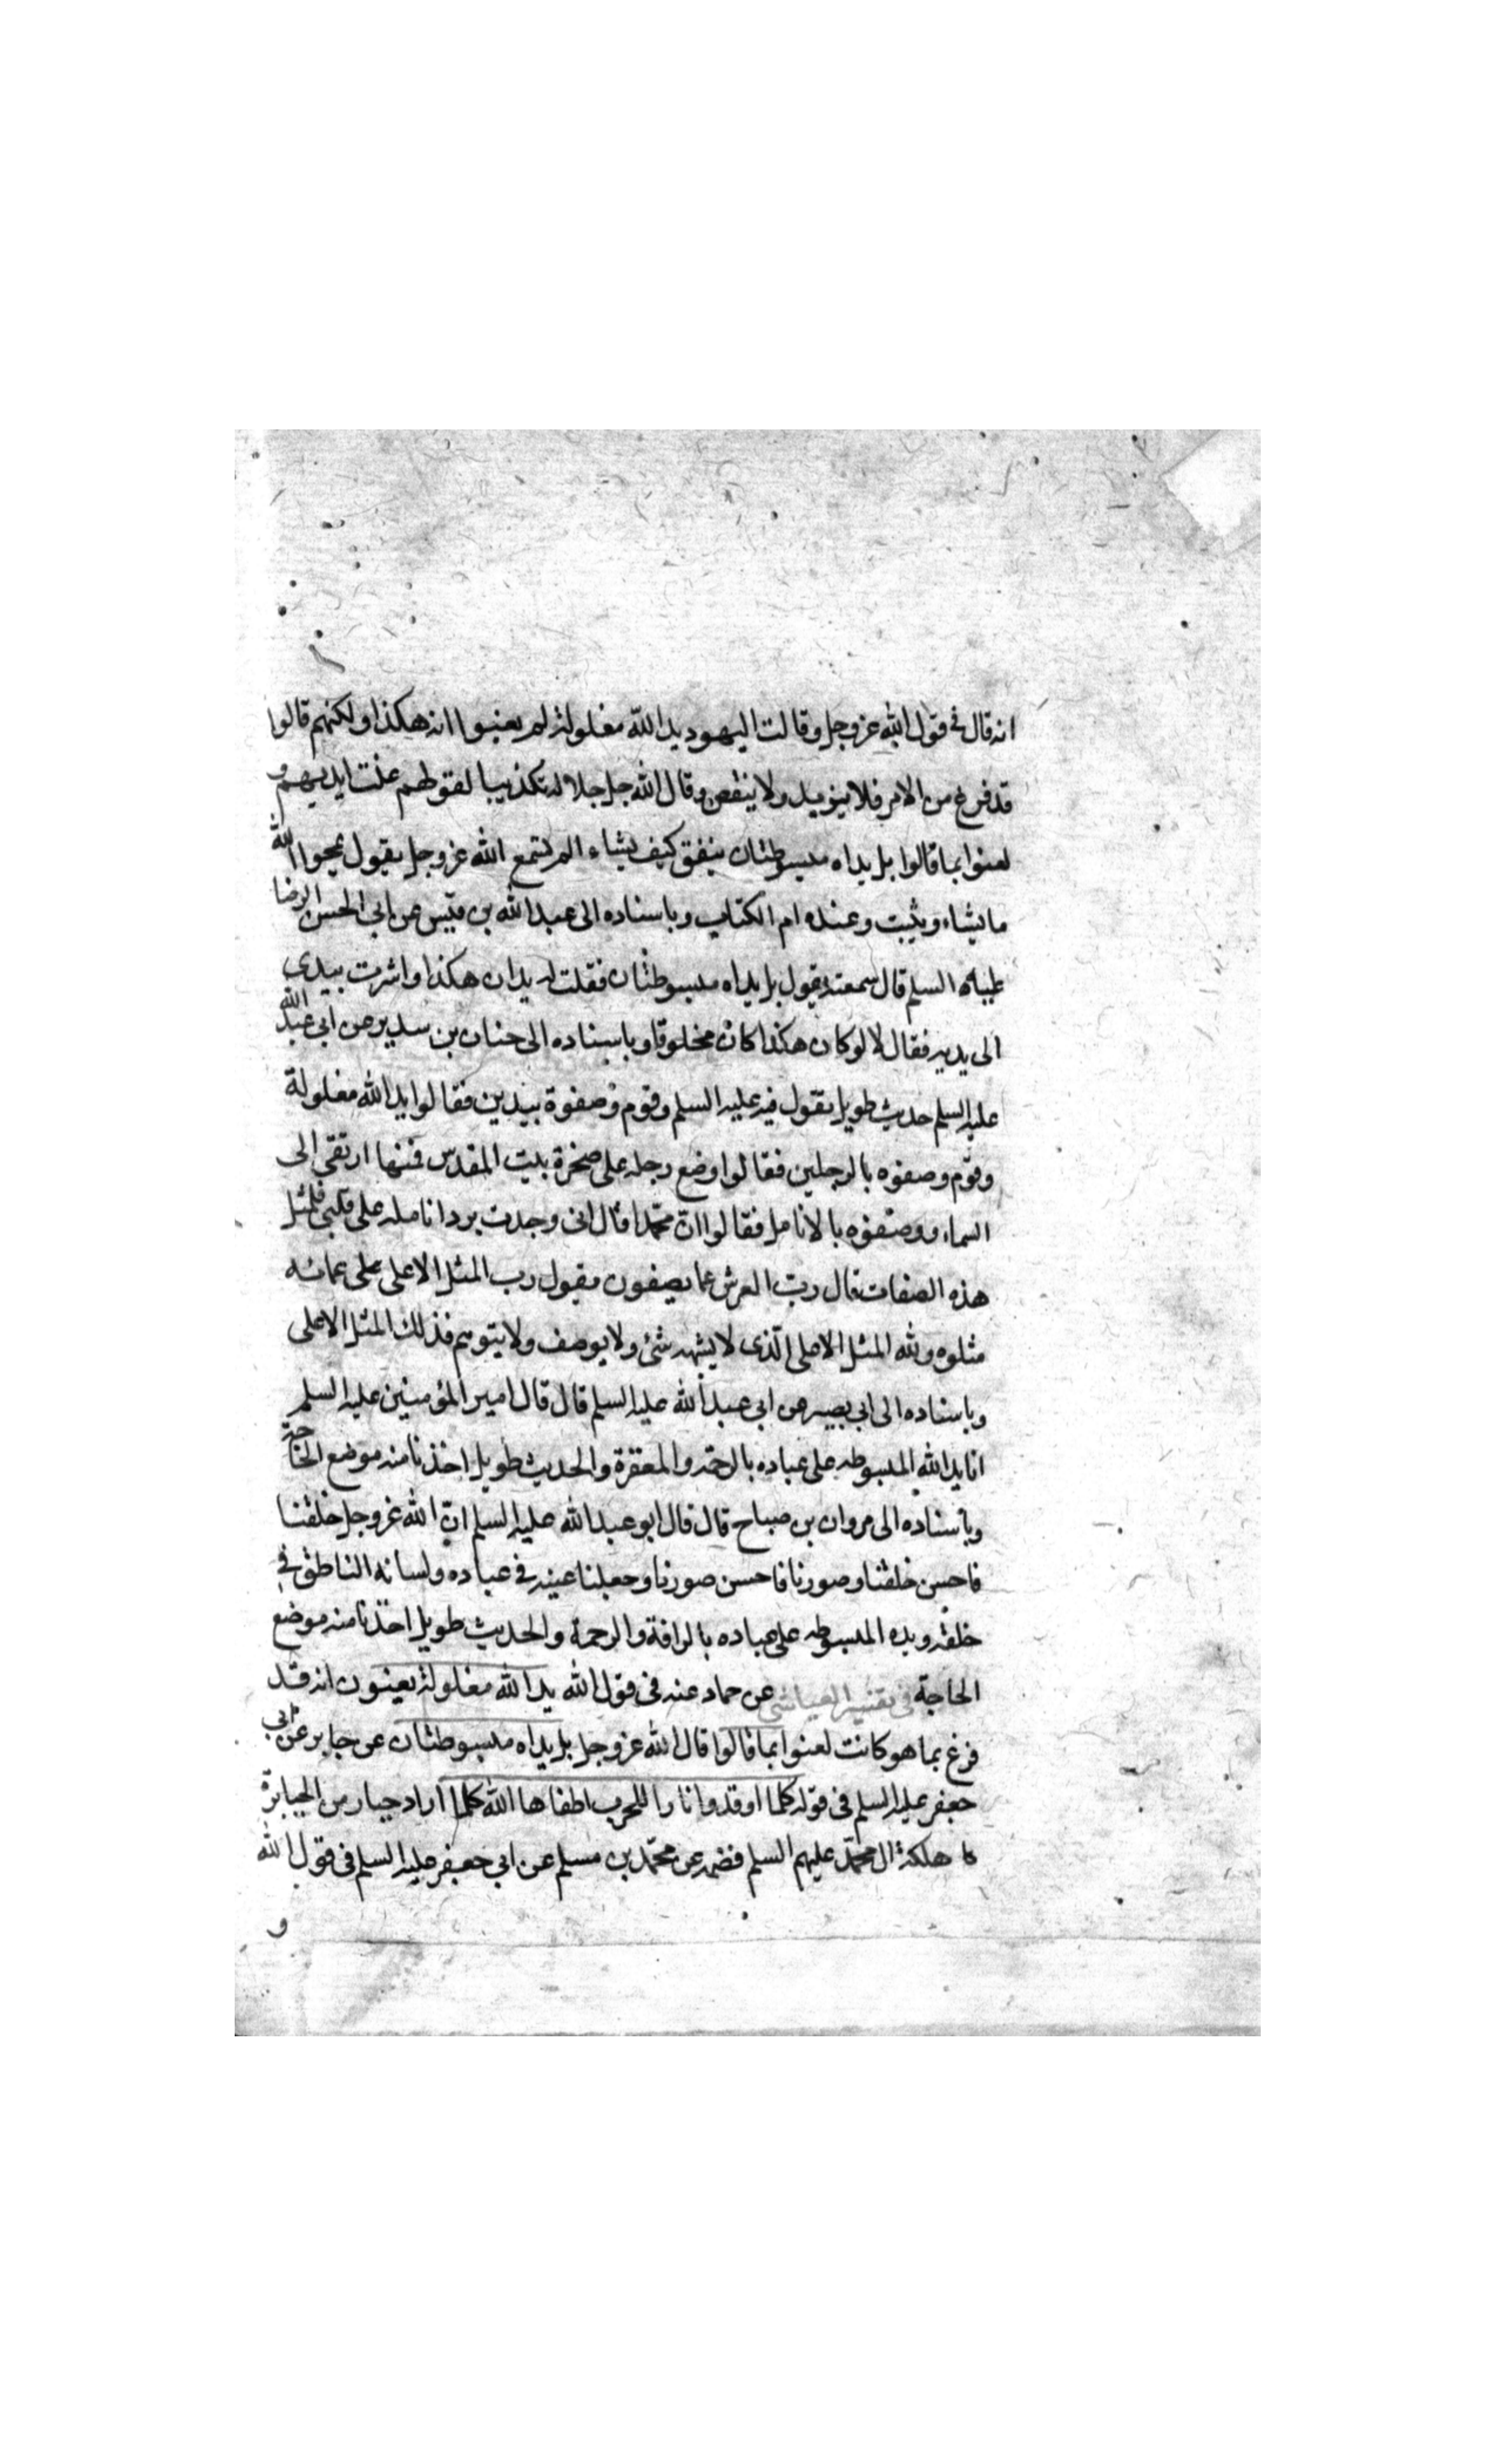 انه قال فى قول الله عز وجل وقالت اليهود يد الله مغلولة لم يعنوا انه هكذا ولكنهم قالوا
قد فرغ من الامر فلا يزيد ولا ينقص وقال الله جل جلاله تكذيبا لقولهم غلت ايديهم و
لعنوا بما قالوا بل يداه مبسوطتان ينفق كيف يشاء الم تسمع الله عز وجل يقول يمحوا الله
ما يشاء ويثبت وعنده ام الكتاب وباسناده الى عبد الله بن قيس عن ابى الحسن الرضا
عليه السلم قال سمعته يقول بل يداه مبسوطتان فقلت له يدان هكذا واشرت بيدى
الى يديه فقال لا لو كان هكذا كان مخلوقا وباسناده الى حنان بن سدير عن ابى عبد الله
عليه السلم حديث طويل يقول فيه عليه السلم وقوم وصفوة بيدين فقالوا يد الله مغلولة
وقوم وصفوه بالرجلين فقالوا وضع رجله على صخرة بيت المقدس فمنها ارتقى الى
السماء ووصفوه بالانامل فقالوا ان محمدا قال انى وجدت برد انامله على قلبى فلمثل
هذه الصفات قال رب العرش عما يصفون يقول رب المثل الاعلى على عما به
مثلوه ولله المثل الاعلى الذى لا يشبهه شئ ولا يوصف ولا يتوهم فذلك المثل الاعلى
وباسناده الى ابى بصير عن ابى عبد الله عليه السلم قال قال امير المؤمنين عليه السلم
انا يد الله المبسوطه على عباده بالرحمة والمغفرة والحديث طويل اخذنا منه موضع الحاجة
وباسناده الى مروان بن صباح قال قال ابو عبد الله عليه السلم ان الله عز وجل خلقنا
فاحسن خلقنا وصورنا فاحسن صورنا وجعلنا عينه فى عباده ولسانه الناطق فى
خلقه ويده المبسوطه على عباده بالرافة والرحمة والحديث طويل اخذنا منه موضع
الحاجة فى تفسير العياشى عن حماد عنه فى قول الله يد الله مغلولة يعنون انه قد
فرغ بما هو كانت لعنوا بما قالوا قال الله عز وجل بل يداه مبسوطتان عن جابر عن ابى
جعفر عليه السلم فى قوله كلما اوقدوا نارا للحرب اطفاها الله كلما اراد جبار من الجبابرة
هلكة ال محمد عليهم السلم فضمه عن محمد بن مسلم عن ابى جعفر عليه السلم فى قول الله
و